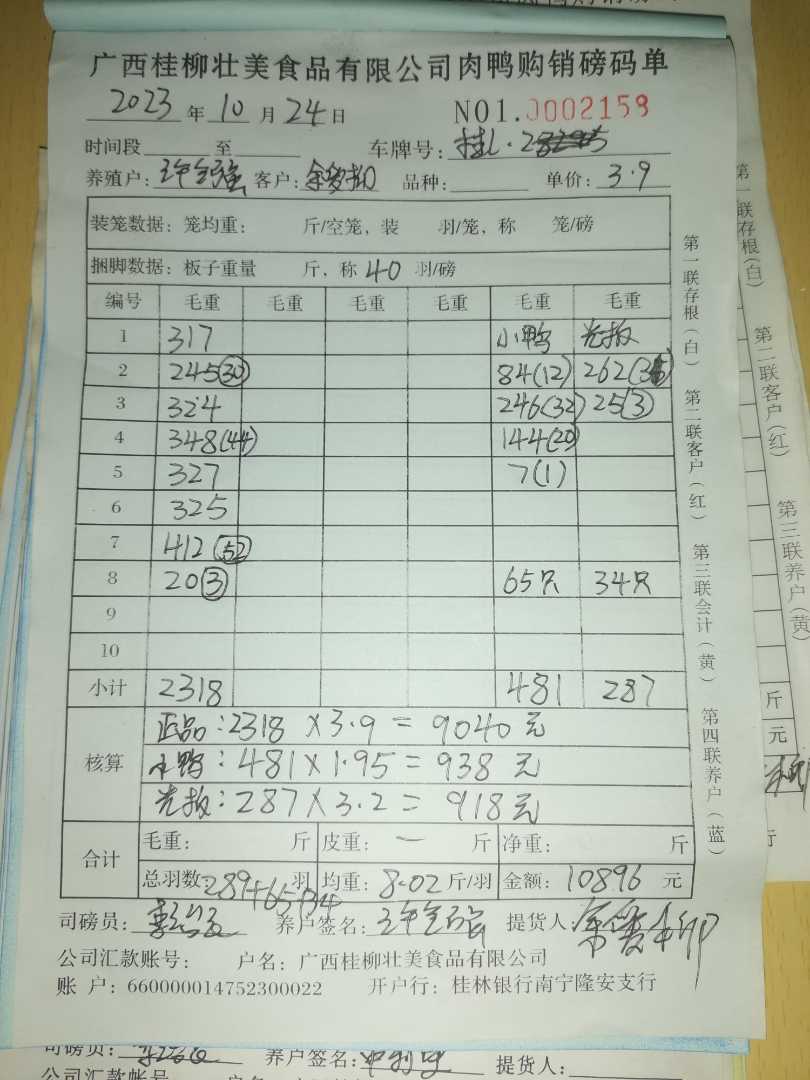 广西桂柳壮美食品有限公司肉鸭购销磅码单
2023 年 10 月 24 日 NO1.0002158
时间段 至 车牌号: 桂L·
养殖户: 客户: 品种: 单价: 3.9
装笼数据: 笼均重: 斤/空笼, 装 羽/笼, 称 笼/磅
捆脚数据: 板子重量 斤, 称 40 羽/磅
编号 毛重 毛重 毛重 毛重 毛重 毛重
1 317 小鸭 光板
2 245(30) 84(12) 262
3 324 246(32) 25(3)
4 348(44) 144(20)
5 327 7(1)
6 325
7 412(52)
8 20(3) 65只 34只
9
10
小计 2318 481 287
核算
正品: 2318 × 3.9 = 9040 元
小鸭: 481 × 1.95 = 938 元
光板: 287 × 3.2 = 918 元
合计
毛重: 斤 皮重: 一 斤 净重: 斤
总羽数: 289+65+34 羽 均重: 8.02 斤/羽 金额: 10896 元
司磅员: 养户签名: 提货人:
公司汇款账号: 户名: 广西桂柳壮美食品有限公司
账 户: 660000014752300022 开户行: 桂林银行南宁隆安支行
第一联存根(白) 第二联客户(红) 第三联会计(黄) 第四联养户(蓝)
第一联存根(白) 第二联客户(红) 第三联养户(黄)
斤
元
行
司磅员: 养户签名: 提货人:
公司汇款账号